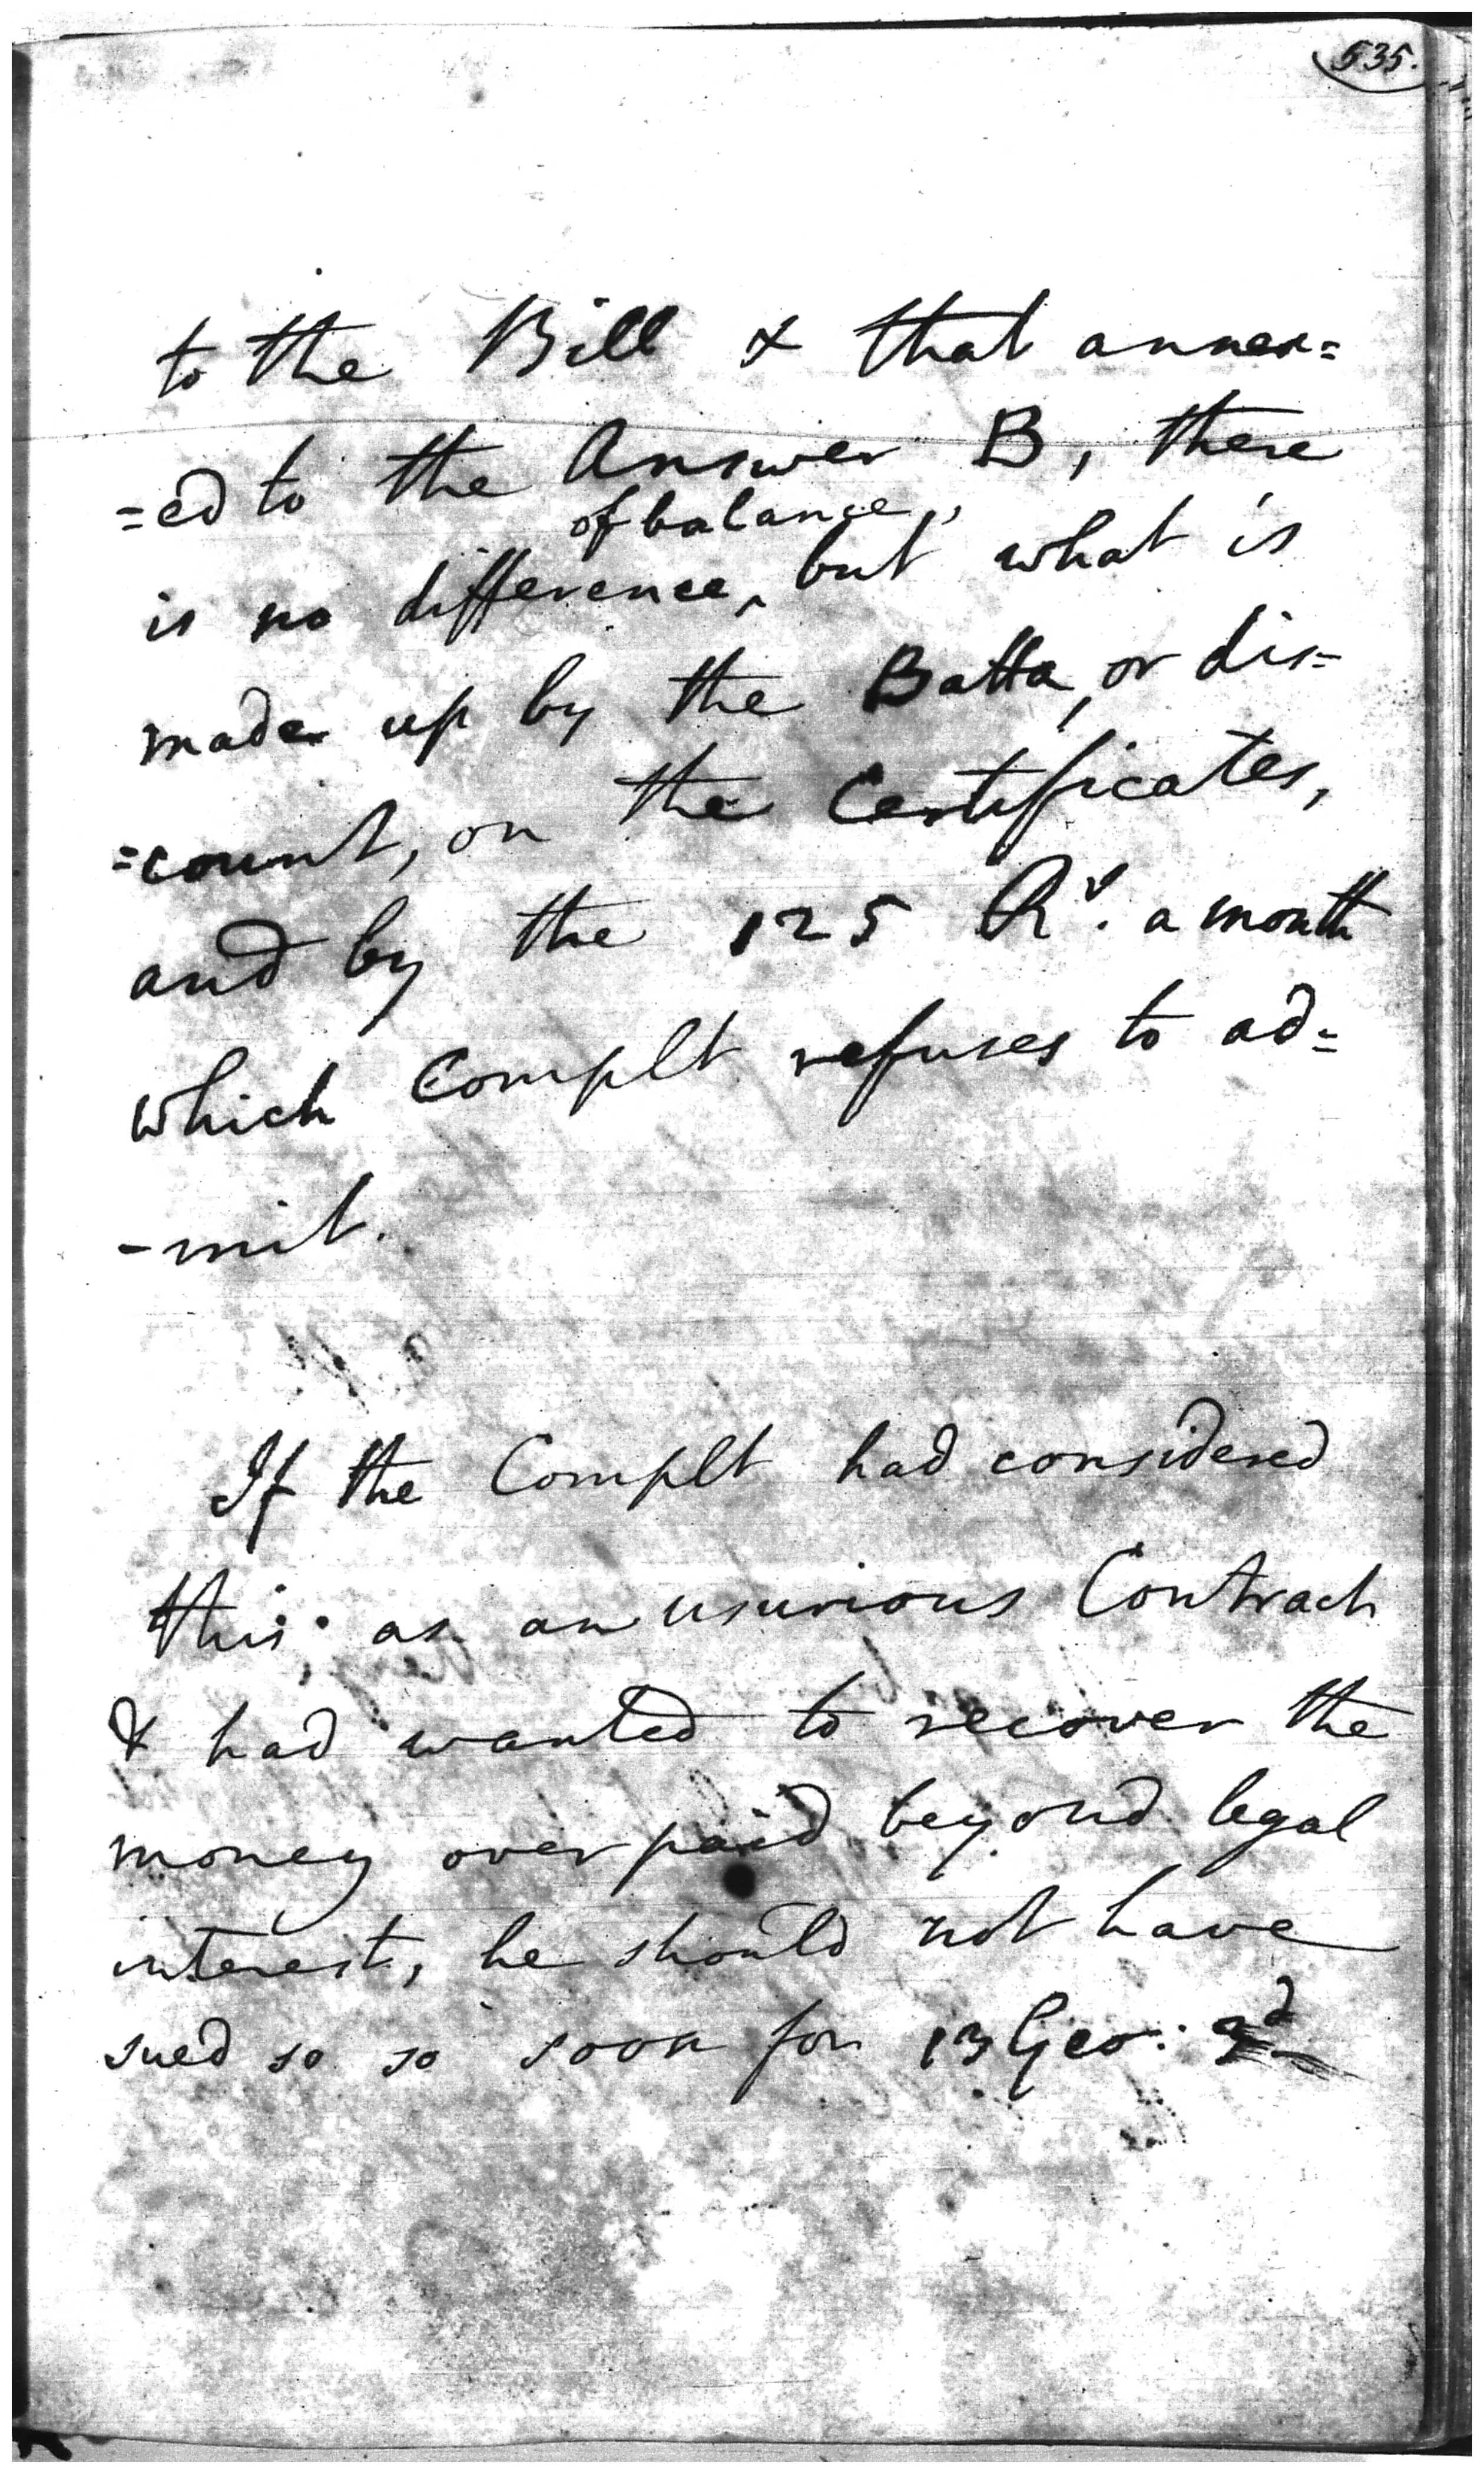 535.
to the Bill & that annex=
=ed to the Answer B, there
of balance,
is no difference, but what is
made up by the Batta, or dis=
=count, on the Certificates,
and by the 125 Rs. a month
which Complt refuses to ad=
-mit.
If the Complt had considered
this as an usurious Contract
& had wanted to recover the
money over paid beyond legal
interest, he should not have
sued so so soon for 13 Geo: 3d